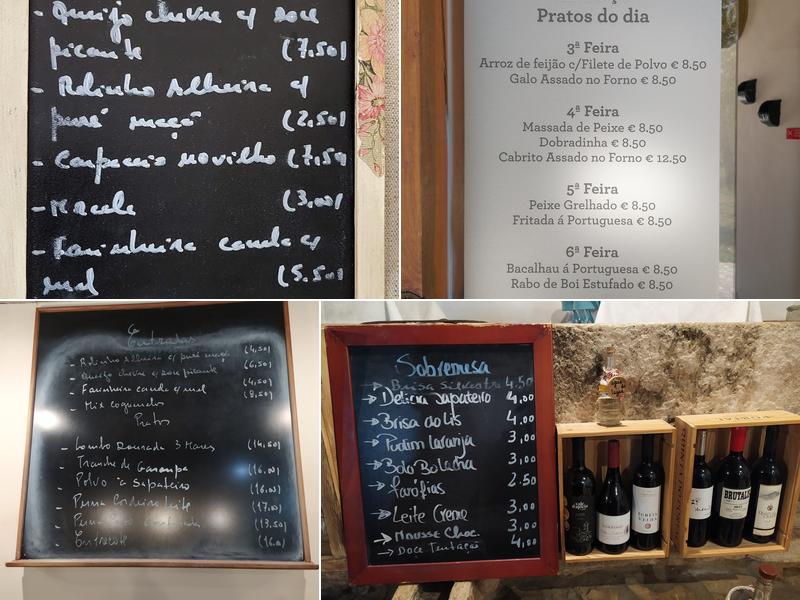 - Queijo chevre c/ doce
picante (7,50)
- Rolinho Alheira c/
puré maçã (2,50)
- Carpaccio novilho (7,50
(3,00)
- Farinheira canela c/
mel (5,50)
Pratos do dia
3ª Feira
Arroz de feijão c/Filete de Polvo € 8.50
Galo Assado no Forno € 8.50
4ª Feira
Massada de Peixe € 8.50
Dobradinha € 8.50
Cabrito Assado no Forno € 12.50
5ª Feira
Peixe Grelhado € 8.50
Fritada á Portuguesa € 8.50
6ª Feira
Bacalhau á Portuguesa € 8.50
Rabo de Boi Estufado € 8.50
Entradas
- Rolinho Alheira c/ puré maçã (4,50)
- Queijo chevre c/ doce picante (6,50)
- Farinheira canela c/ mel (4,50)
- Mix cogumelos (8,50)
Pratos
- Lombo Dourada 3 Mares (14,50)
- Tranche de Garoupa (16,00)
- Polvo à Sapateiro (16,00)
- Perna Cordeiro Leite (17,00)
- (13,50)
- Entrecote (16,00)
Sobremesa
→ Brisa Silvestre 4,50
→ Delicia Sapateiro 4,00
→ Brisa do Lis 4,00
→ Pudim laranja 3,00
→ Bolo Bolacha 3,00
→ Farófias 2.50
→ Leite Creme 3,00
→ Mousse Choc. 3,00
→ Doce Tentação 4,00
BRUTALIS